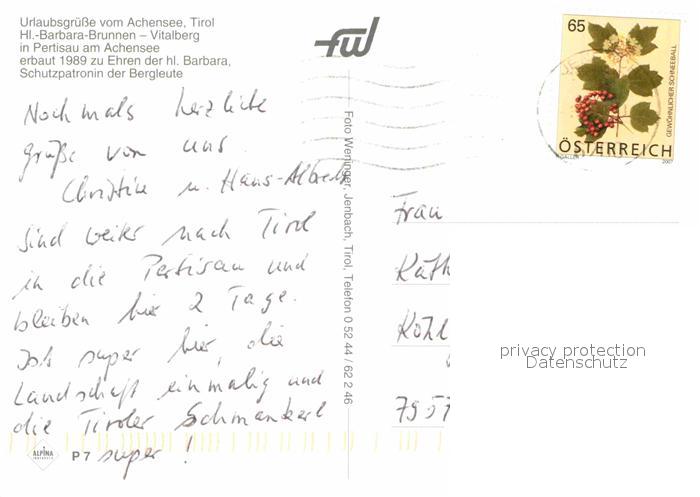 Urlaubsgrüße vom Achensee, Tirol
Hl.-Barbara-Brunnen – Vitalberg
in Pertisau am Achensee
erbaut 1989 zu Ehren der hl. Barbara,
Schutzpatronin der Bergleute
fwl
65
GEWÖHNLICHER SCHNEEBALL
ÖSTERREICH
2007
Nochmals herzliche
Grüße von uns.
Christine u. Hans-Albrecht
Sind weiter nach Tirol
in die Pertisau und
bleiben hier 2 Tage.
Ist super hier, die
Landschaft einmalig und
die Tiroler Schmankerl
super!
Foto Weninger, Jenbach, Tirol, Telefon 0 52 44 / 62 2 46
Frau
Käth
Köhl
7957
privacy protection
Datenschutz
ALPINA
P 7